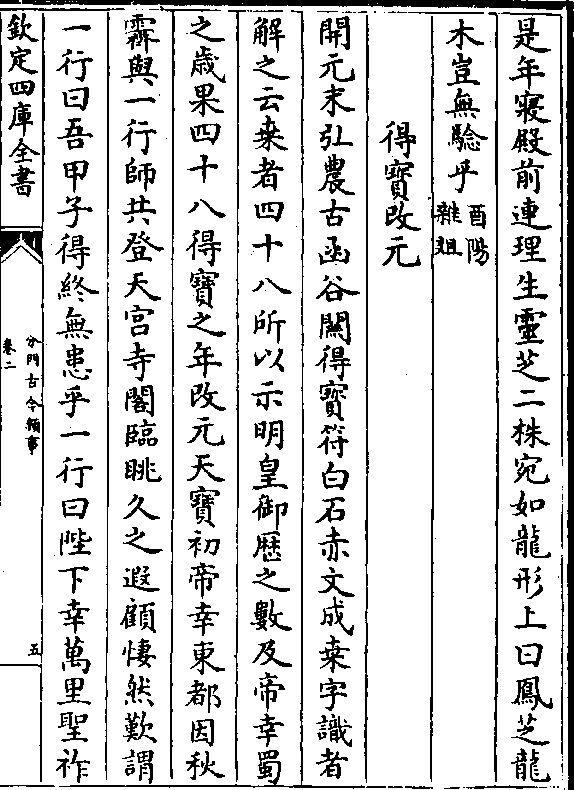 是年寢殿前連理生靈芝二株宛如龍形上曰鳳芝龍
木豈無驗乎酉陽
雜俎
得寶改元
開元末弘農古函谷關得寶符白石赤文成桒字識者
解之云桒者四十八所以示明皇御歴之數及帝幸蜀
之歲果四十八得寶之年改元天寶初帝幸東都因秋
霽與一行師共登天宮寺閣臨眺久之遐顧悽然歎謂
一行曰吾甲子得終無患乎一行曰陛下幸萬里聖祚
欽定四庫全書
分門古今類事
卷二
五